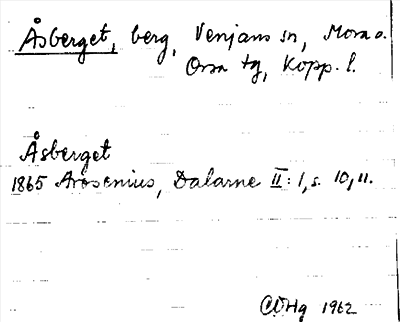 Åsberget, berg, Venjans sn, Mora o.
Orsa tg, Kopp. l.
Åsberget
1865 Arosenius, Dalarne II: 1, s. 10, 11.
CWHg 1962